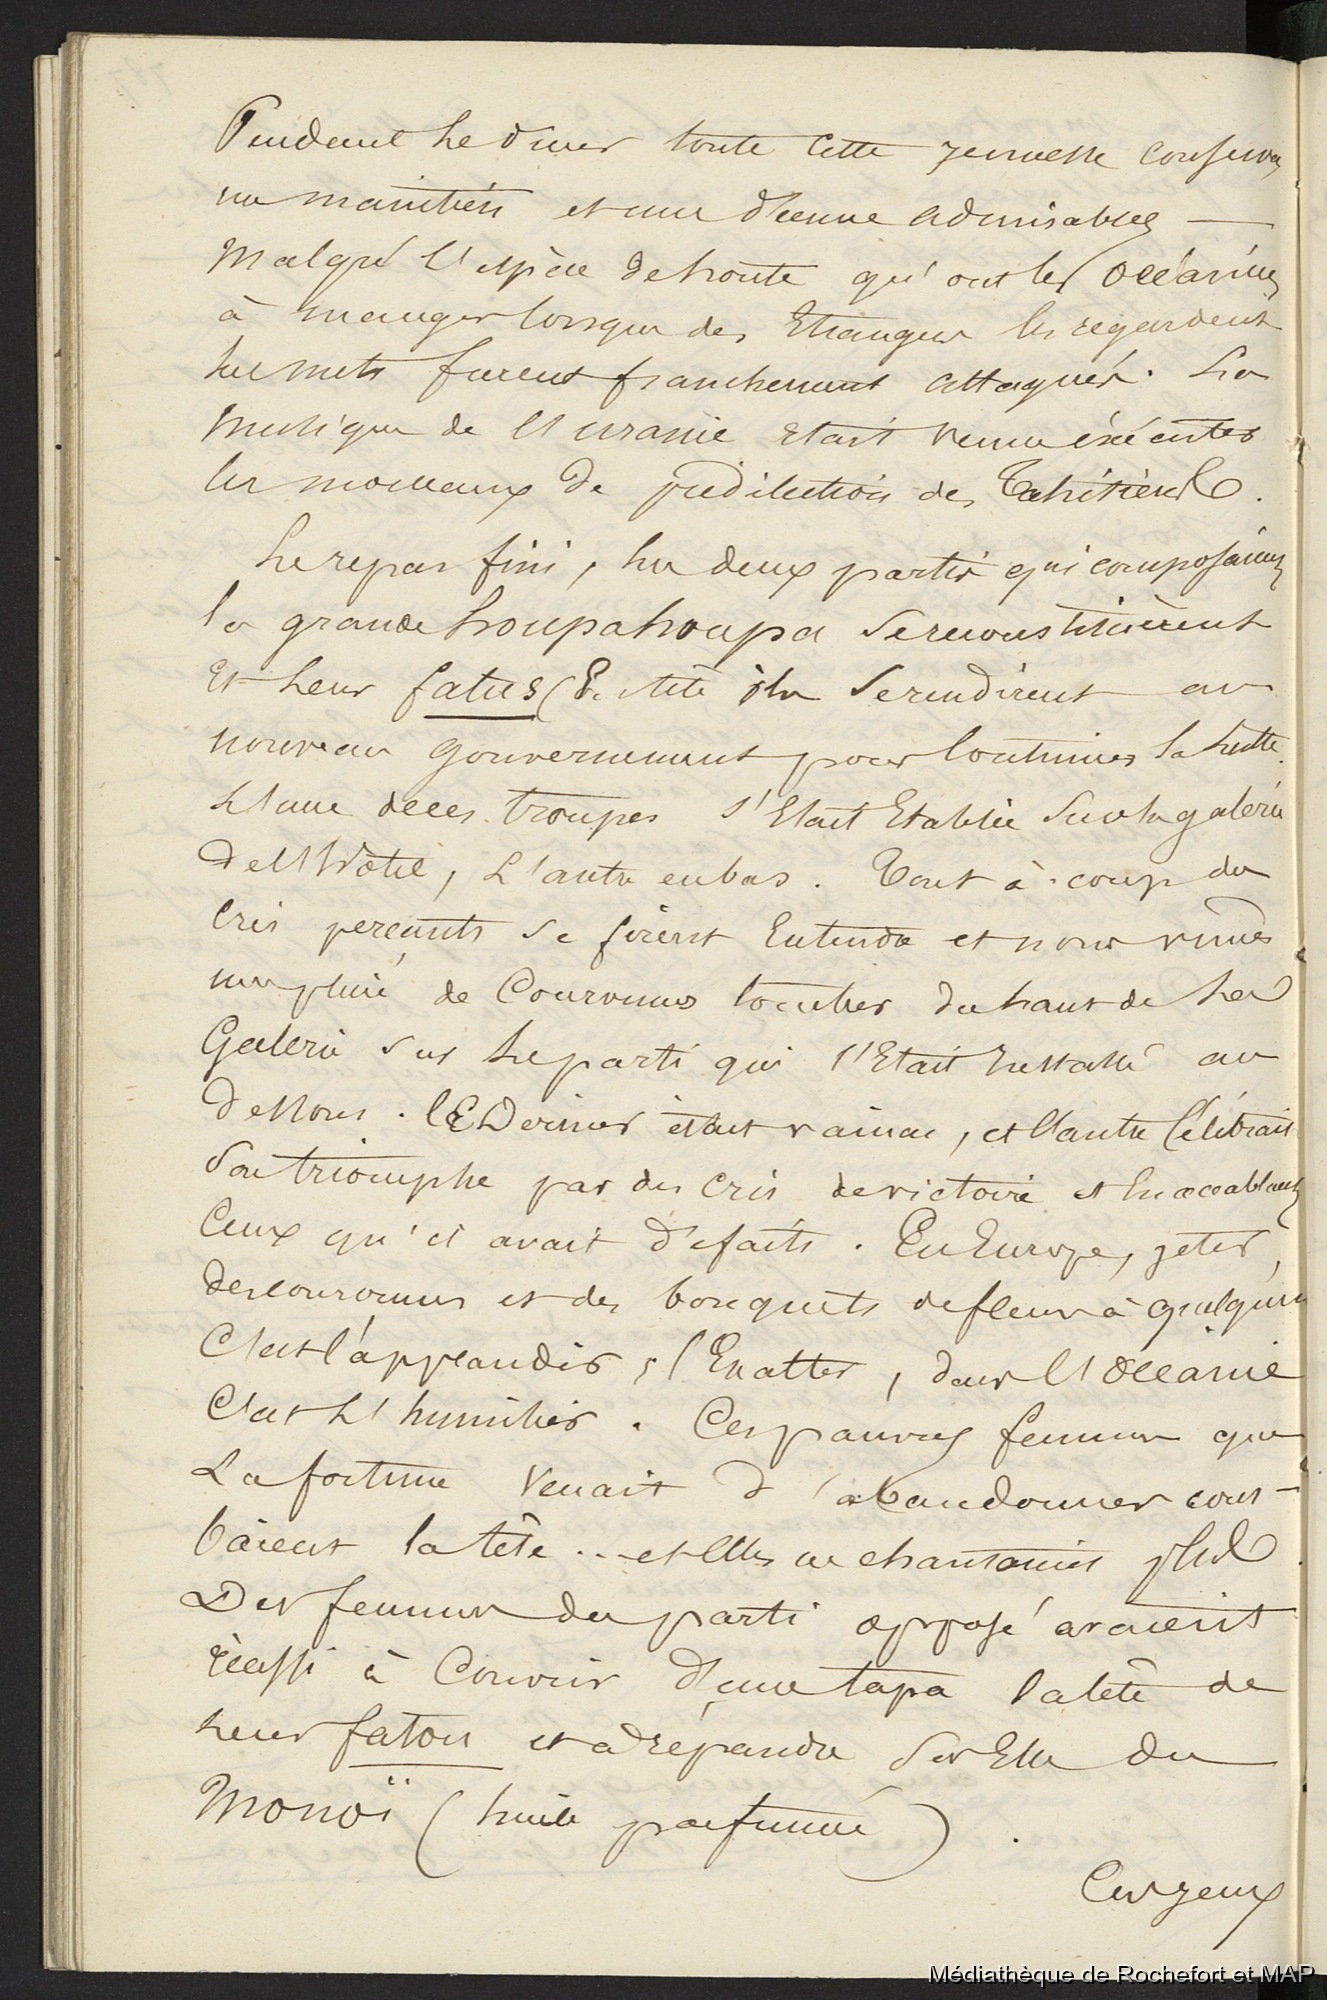 Pendant le diner toute cette jeunesse conserva
un maintien et une décence admirables —
Malgré l'espèce de honte qu'ont les océaniens
à manger lorsque des Etrangers les regardent
les mets furent franchement attaqués. La
musique de l'Uranie etait venue éxécuter
les morceaux de prédilection des Tahitiens.
Le repas fini, les deux partis qui composaient
la grande houpahoupa se reconstituèrent
et leur fatus En tête ils se rendirent au
nouveau gouvernement pour continuer la lutte.
L'une de ces troupes s'Etait Etablie sur la galerie
de l'hôtel, L'autre en bas. Tout à coup des
Cris perçants se firent Entendre et nous vîmes
une pluie de Couronnes tomber du haut de la
Galerie sur le parti qui s'Etait Installé au
dessous. Ce Dernier était vaincu, et l'autre Célébrait
son triomphe par des cris de victoire et En accablant
Ceux qu'il avait défaits. En Europe, jeter,
des couronnes et des bouquets de fleurs à quelqu'un
C'est l'applaudir, l'Exalter, dans l'Océanie
C'est L'humilier. Ces pauvres femmes que
La fortune Venait d'abandonner cour-
baient la tête... et Elles ne chantaient plus.
Des femmes du parti opposé avaient
réussi à Couvrir d'une tapa la tête de
leur fatou et à répandre sur Elle du
Monoï (huile parfumée).
Ces jeux
Médiathèque de Rochefort et MAP